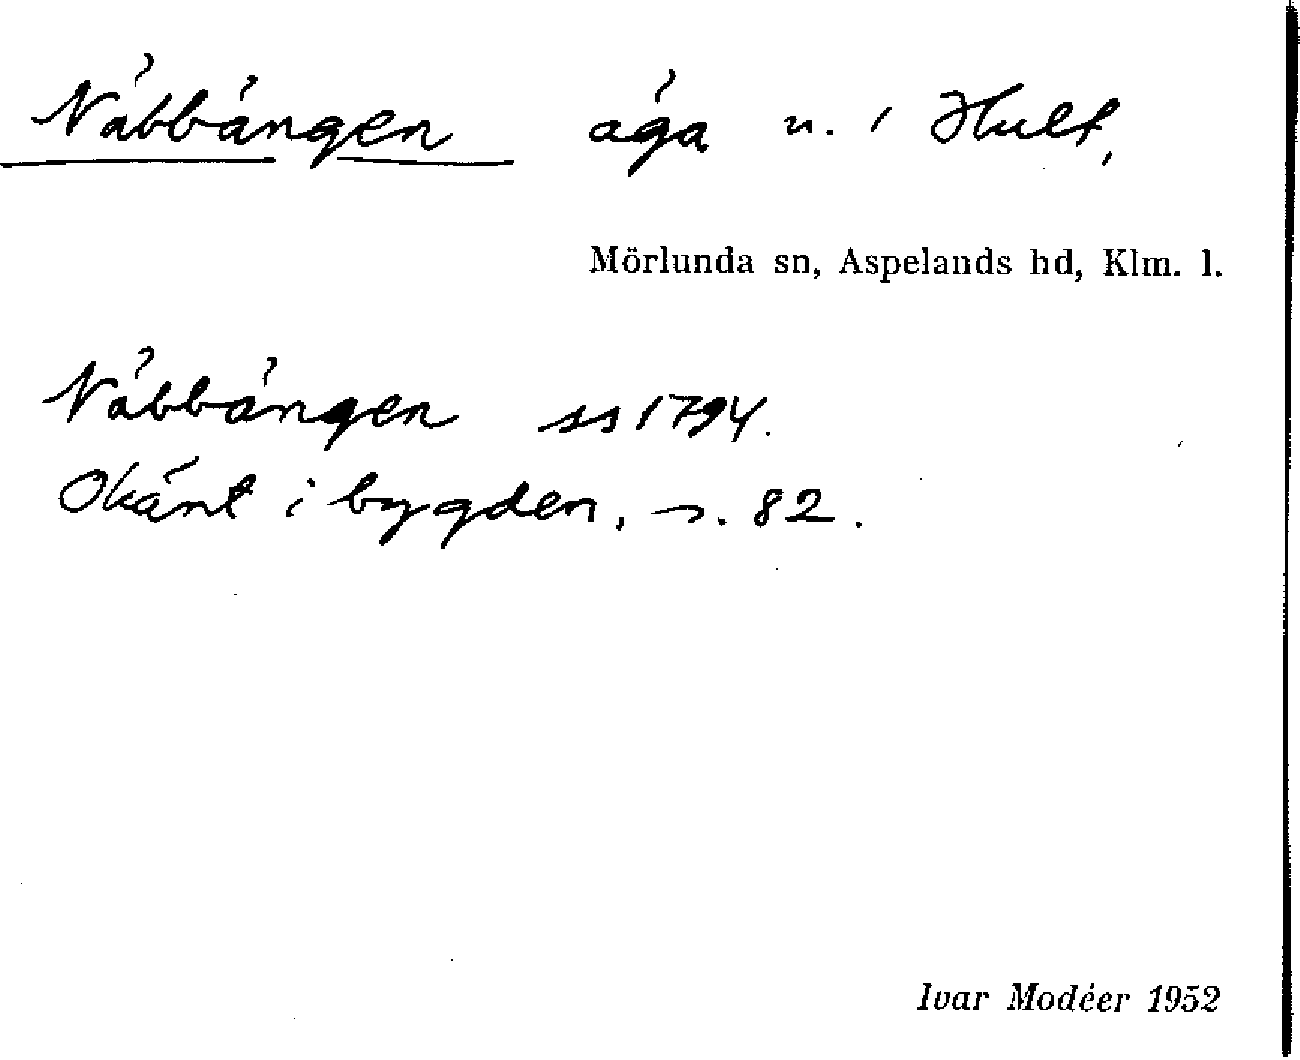 Näbbängen äga u. i Hult,
Mörlunda sn, Aspelands hd, Klm. l.
Näbbängen ss 1794.
Okänt i bygden, s. 82.
Ivar Modéer 1952